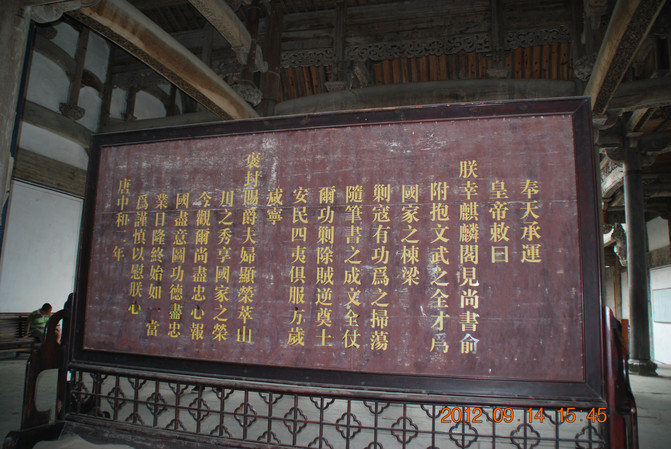 奉天承運
皇帝敕曰
朕幸麒麟閣見尚書俞
附抱文武之全才爲
國家之棟梁
剿寇有功爲之掃蕩
隨筆書之成文全仗
爾功剿除賊逆奠土
安民四夷俱服万歲
咸寧
褒封賜爵夫婦顯榮萃山
川之秀享國家之榮
今觀爾尚盡忠心報
國盡意圖功德盡忠
業日隆終始如一當
爲謹慎以慰朕心
唐中和 年
2012 09 14 15 45